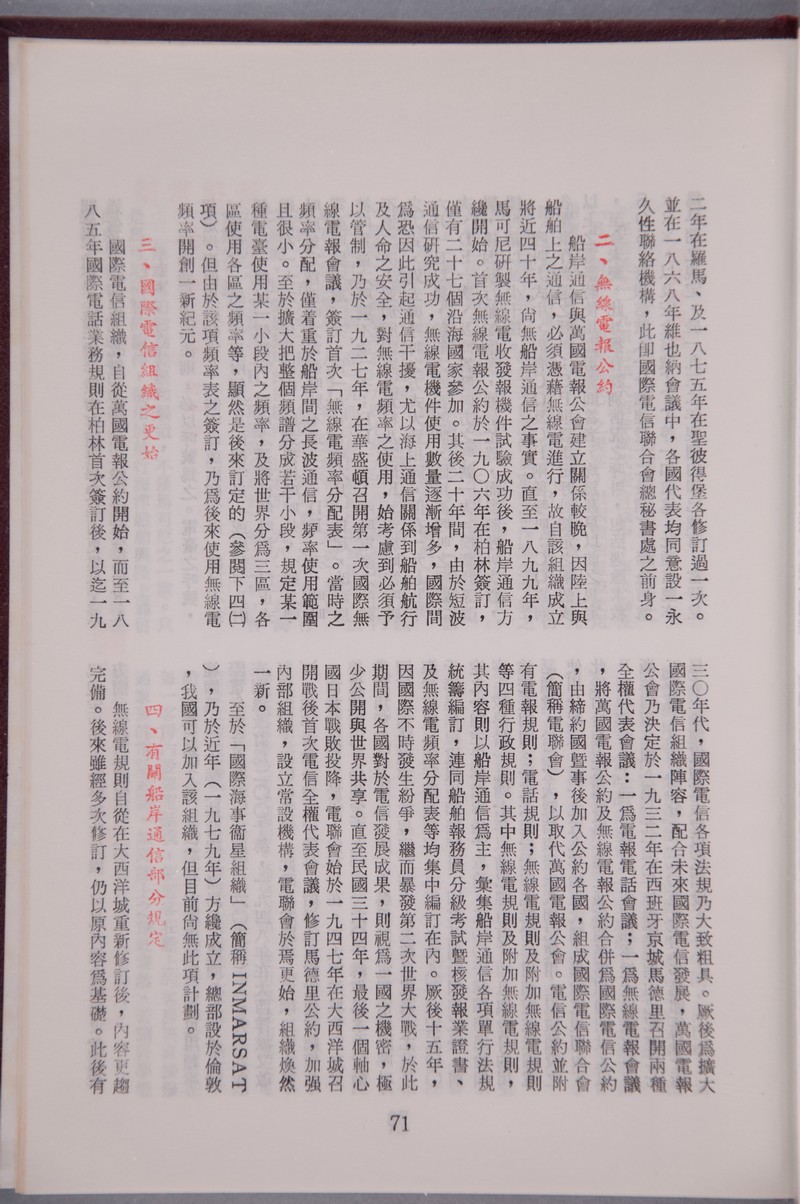 二年在羅馬、及一八七五年在聖彼得堡各修訂過一次。
並在一八六八年維也納會議中，各國代表均同意設一永
久性聯絡機構，此卽國際電信聯合會總秘書處之前身。
二、無線電報公約
船岸通信與萬國電報公會建立關係較晚，因陸上與
船舶上之通信，必須憑藉無線電進行，故自該組織成立
將近四十年，尙無船岸通信之事實。直至一八九九年，
馬可尼研製無線電收發報機件試驗成功後，船岸通信方
纔開始。首次無線電報公約於一九〇六年在柏林簽訂，
僅有二十七個沿海國家參加。其後二十年間，由於短波
通信研究成功，無線電機件使用數量逐漸增多，國際間
爲恐因此引起通信干擾，尤以海上通信關係到船舶航行
及人命之安全，對無線電頻率之使用，始考慮到必須予
以管制，乃於一九二七年，在華盛頓召開第一次國際無
線電報會議，簽訂首次「無線電頻率分配表」。當時之
頻率分配，僅着重於船岸間之長波通信，頻率使用範圍
且很小。至於擴大把整個頻譜分成若干小段，規定某一
種電臺使用某一小段內之頻率，及將世界分爲三區，各
區使用各區之頻率等，顯然是後來訂定的（參閱下四㈡
項）。但由於該項頻率表之簽訂，乃爲後來使用無線電
頻率開創一新紀元。
三、國際電信組織之更始
國際電信組織，自從萬國電報公約開始，而至一八
八五年國際電話業務規則在柏林首次簽訂後，以迄一九
三〇年代，國際電信各項法規乃大致粗具。厥後爲擴大
國際電信組織陣容，配合未來國際電信發展，萬國電報
公會乃決定於一九三二年在西班牙京城馬德里召開兩種
全權代表會議：一爲電報電話會議；一爲無線電報會議
，將萬國電報公約及無線電報公約合併爲國際電信公約
，由締約國暨事後加入公約各國，組成國際電信聯合會
（簡稱電聯會），以取代萬國電報公會。電信公約並附
有電報規則；電話規則；無線電規則及附加無線電規則
等四種行政規則。其中無線電規則及附加無線電規則，
其內容則以船岸通信爲主，彙集船岸通信各項單行法規
統籌編訂，連同船舶報務員分級考試暨核發報業證書、
及無線電頻率分配表等均集中編訂在內。厥後十五年，
因國際不時發生紛爭，繼而暴發第二次世界大戰，於此
期間，各國對於電信發展成果，則視爲一國之機密，極
少公開與世界共享。直至民國三十四年，最後一個軸心
國日本戰敗投降，電聯會始於一九四七年在大西洋城召
開戰後首次電信全權代表會議，修訂馬德里公約，加强
內部組織，設立常設機構，電聯會於焉更始，組織煥然
一新。
至於「國際海事衞星組織」（簡稱 INMARSAT
），乃於近年（一九七九年）方纔成立，總部設於倫敦
，我國可以加入該組織，但目前尙無此項計劃。
四、有關船岸通信部分規定
無線電規則自從在大西洋城重新修訂後，內容更趨
完備。後來雖經多次修訂，仍以原內容爲基礎。此後有
71